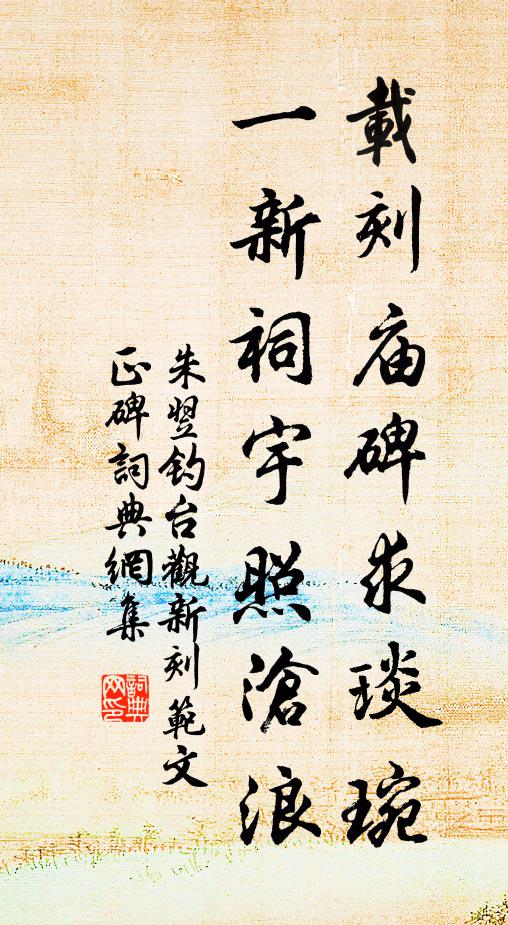 載刻庙碑求琰琬
一新祠宇照滄浪
朱翌钓台觀新刻範文
正碑詞典網集
詞典网印